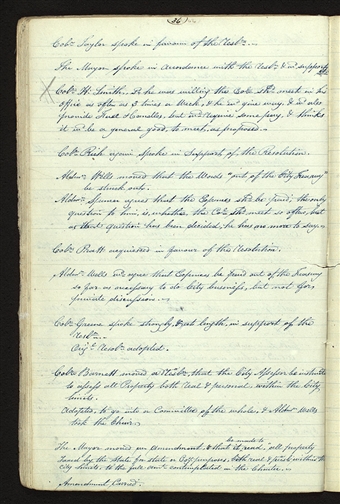 36
Cobⁿ Taylor spoke in favour of the Resⁿ.
The Mayor spoke in accordance with the Resⁿ & wᵈ support
it
X Cobⁿ H. Smith, If he was willing the Com. shᵈ meet in his
office as often as 3 times a Week, & he wᵈ give way, & wᵈ also
provide Fuel & Candles, but wᵈ require some pay, & thinks
it wᵈ be a general good, to meet, as proposed.
Cobⁿ Rich again spoke in Support of the Resolution.
Aldⁿ Wells moved that the Words "out of the City Treasury"
be struck out.
Aldⁿ Spencer agrees that the Expenses shᵈ be paid, the only
question to him, is, whether the Coⁿ shᵈ meet so often, but
as that question has been decided, he has no more to say.
Cobⁿ Pratt acquiesced in favour of the Resolution.
Aldⁿ Wells wᵈ agree that Expenses be paid out of the Treasury
so far as necessary to do City business, but not for
private discussion.
Cobⁿ Green spoke strongly, & at length, in support of the
Resⁿ.
Origˡ Resⁿ adopted.
Cobⁿ Barnett moved a Resⁿ, that the City Assessor be instructed
to assess all Property both Real & personal within the City
limits.
Adopted, to go into a Committee of the whole, & Aldⁿ Wells
took the Chair.
be made to
The Mayor moved an amendment, & that it read, "all property
taxed by the State for State or Coʸ purposes, both real & personal within the
City limits, to the full extent contemplated in the Charter.
Amendment Carried.